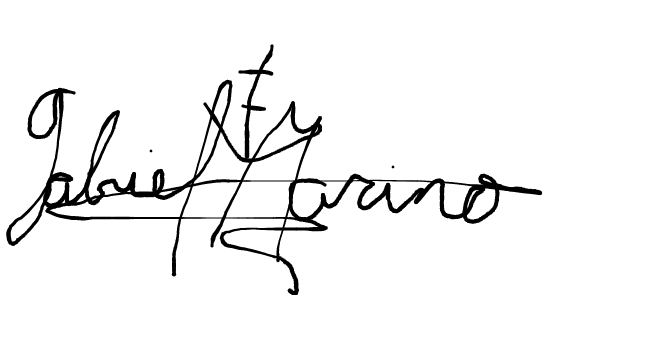 Gabriel Marino